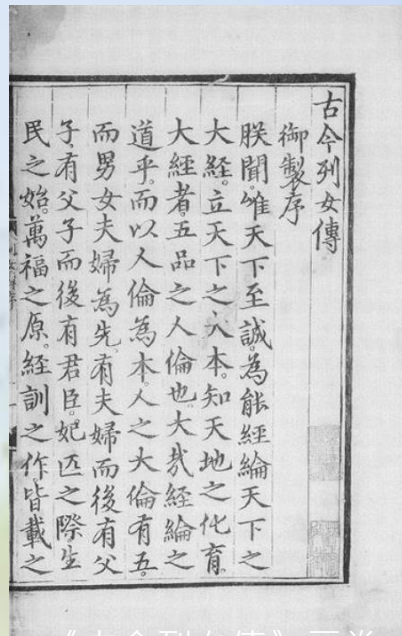 古今列女傳
御製序
朕聞。唯天下至誠。為能經綸天下之
大經。立天下之大本。知天地之化育。
大經者。五品之人倫也。大哉經綸之
道乎。而以人倫為本。人之大倫有五。
而男女夫婦為先。有夫婦而後有父
子。有父子而後有君臣。妃匹之際。生
民之始。萬福之原。經訓之作。皆載之